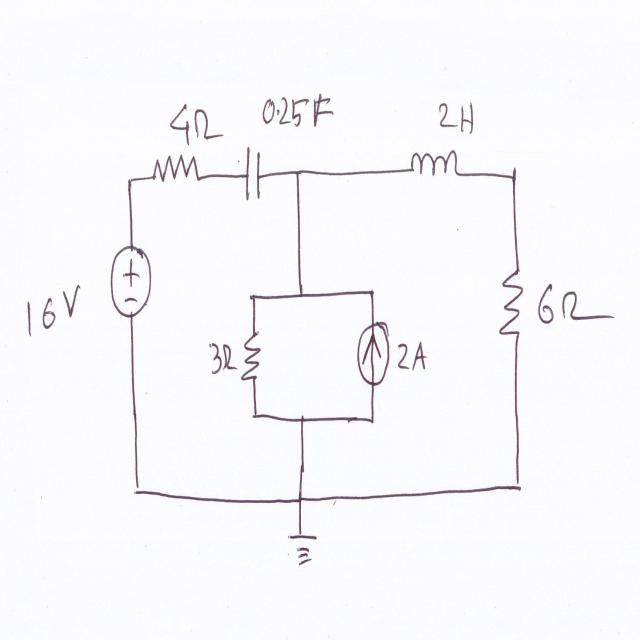 4Ω
0.25F
2H
16V
+
−
3Ω
2A
6Ω